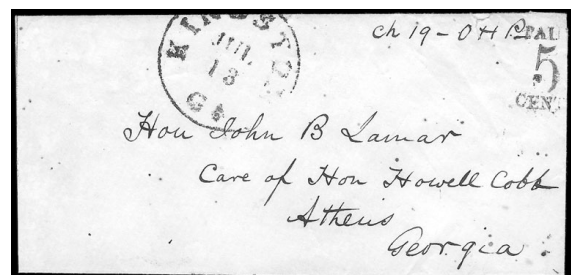 KINGSTON
JUL
13
GA
ch 19-OHP
PAI
5
CENT
Hon John B Lamar
Care of Hon Howell Cobb
Athens
Georgia